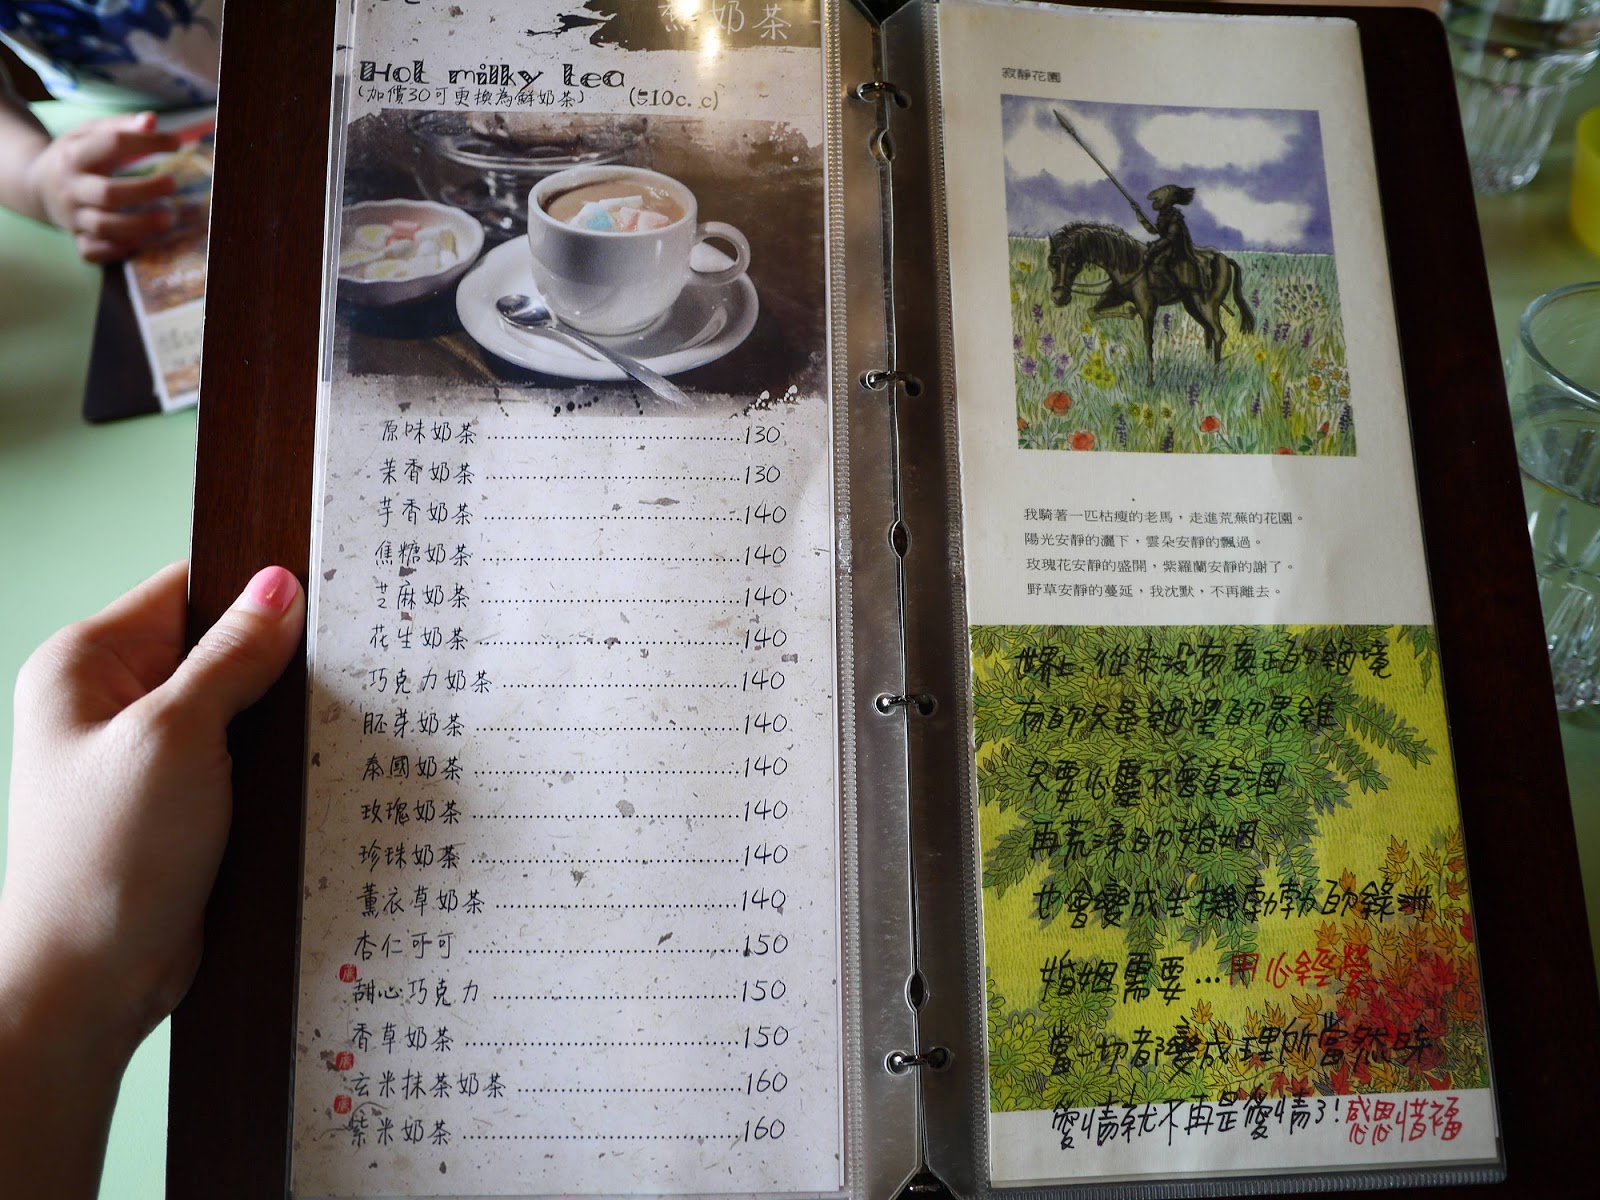 奶茶
Hot milky tea
(加價30可更換為鮮奶茶) (510c.c)
原味奶茶 130
茉香奶茶 130
芋香奶茶 140
焦糖奶茶 140
芝麻奶茶 140
花生奶茶 140
巧克力奶茶 140
胚芽奶茶 140
泰國奶茶 140
玫瑰奶茶 140
珍珠奶茶 140
薰衣草奶茶 140
杏仁可可 150
甜心巧克力 150
香草奶茶 150
玄米抹茶奶茶 160
紫米奶茶 160
寂靜花園
我騎著一匹枯瘦的老馬，走進荒蕪的花園。
陽光安靜的灑下，雲朵安靜的飄過。
玫瑰花安靜的盛開，紫羅蘭安靜的謝了。
野草安靜的蔓延，我沈默，不再離去。
世界上從來沒有真正的絕境
有的只是絕望的思維
只要心靈不會乾涸
再荒涼的婚姻
也會變成生機勃勃的綠洲
婚姻需要...用心經營
當一切都變成理所當然時
愛情就不再是愛情了!感恩惜福